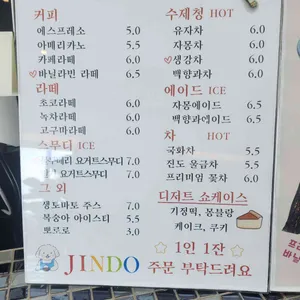 커피
에스프레소 5.0
아메리카노 5.5
카페라떼 6.0
바닐라빈 라떼 6.5
라떼
초코라떼 6.0
녹차라떼 6.0
고구마라떼 6.0
스무디 ICE
요거트스무디 7.0
요거트스무디 7.0
그 외
생토마토 주스 7.0
복숭아 아이스티 5.5
뽀로로 3.0
수제청 HOT
유자차 6.0
자몽차 6.0
생강차 6.0
백향과차 6.0
에이드 ICE
자몽에이드 6.5
백향과에이드 6.5
차 HOT
국화차 5.5
진도 울금차 5.5
프리미엄 꽃차 6.0
디저트 쇼케이스
기정떡, 몽블랑
케이크, 쿠키
JINDO
1인 1잔
주문 부탁드려요